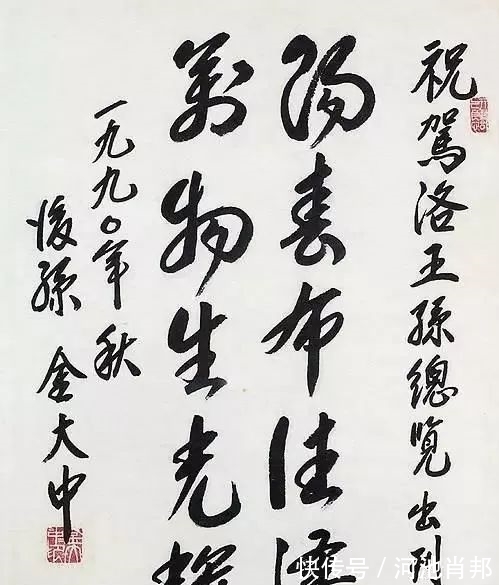 祝駕洛王孫總覽出刊
陽春布德澤
萬物生光輝
一九九〇年秋
後孫 金大中
快传号/河池肖邦